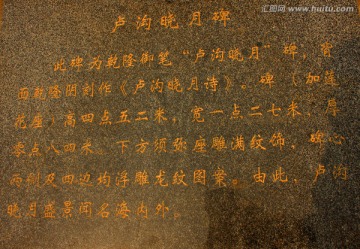 汇图网 www.huitu.com
卢沟晓月碑
此碑为乾隆御笔“卢沟晓月”碑，背
面乾隆阴刻作《卢沟晓月诗》。碑（加莲
花座）高四点五二米，宽一点二七米，厚
零点八四米，下方须弥座雕满纹饰，碑心
两侧及四边均浮雕龙纹图案。由此，卢沟
晓月盛景闻名海内外。